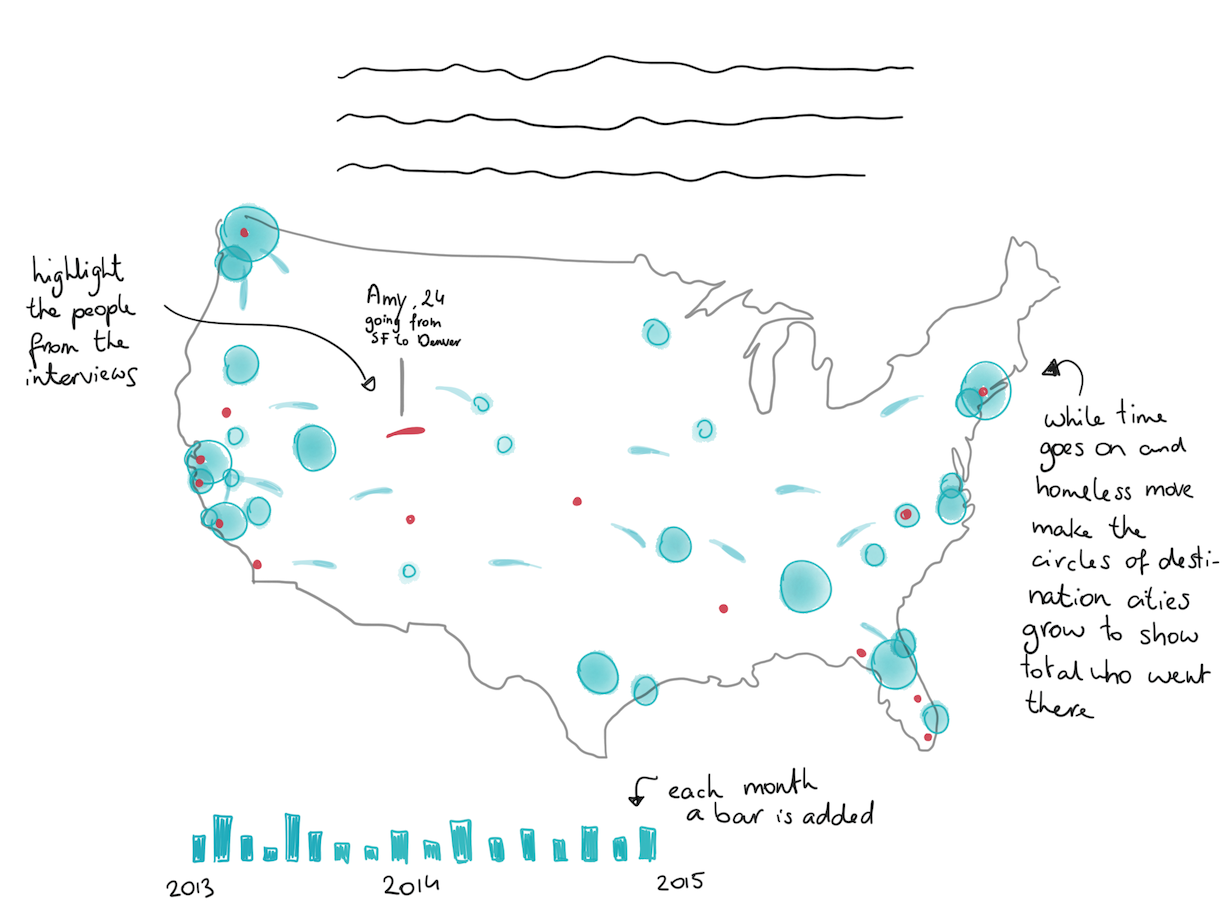 highlight
the people
from the
interviews
Amy, 24
going from
SF to Denver
while time
goes on and
homeless move
make the
circles of desti-
nation cities
grow to show
total who went
there
each month
a bar is added
2013
2014
2015